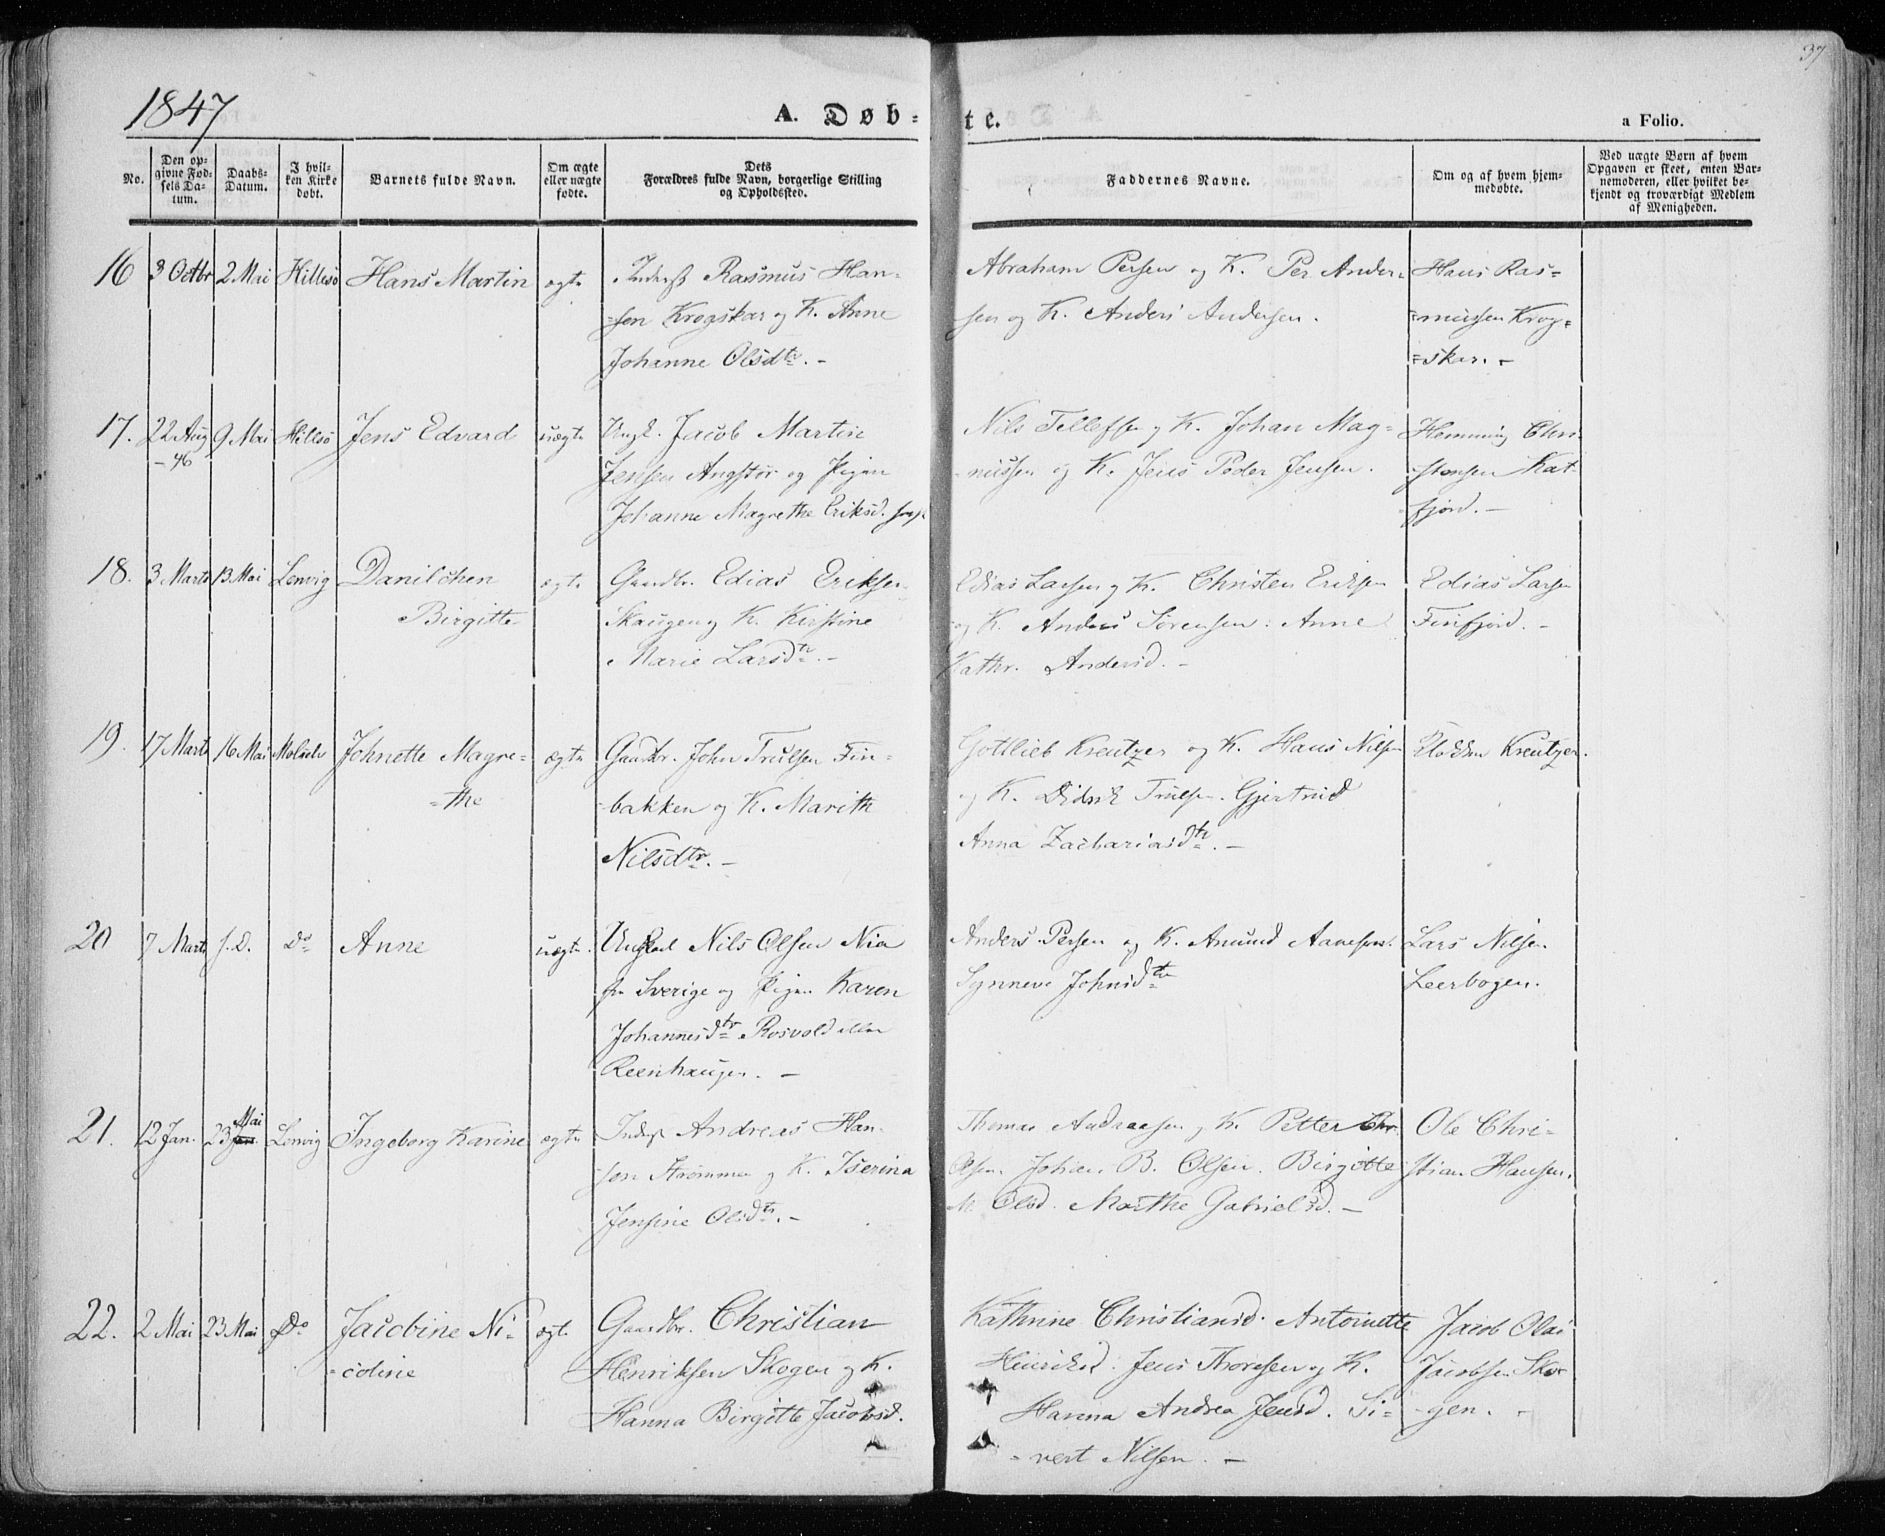 37
1847
A. Døb-
te.
a Folio.
No.
Den op-
givne Fød-
sels Da-
tum.
Daabs-
Datum.
I hvil-
ken Kirke
døbt.
Barnets fulde Navn.
Om ægte
eller uægte
fødte.
Dets
Forældres fulde Navn, borgerlige Stilling
og Opholdssted.
Faddernes Navne.
Om og af hvem hjem-
medøbte.
Ved uægte Børn af hvem
Opgaven er skeet, enten Bar-
nemoderen, eller hvilket be-
kjendt og troværdigt Medlem
af Menigheden.
16 3 Octbr 2 Mai Hillesø Hans Martin ægte
Inderst Rasmus Han-
=sen Krogskar og K. Anne
Johanne Olsdtr. -
Abraham Persen og K. Per Ander-
sen og K. Anders Andersen.
Hans Ras=
=mussen Krog=
=skar. -
17. 22 Aug 9 Mai Hillsø Jens Edvard uægte
- 46
Ungk. Jacob Martin
Jensen Angstør og Pigen
Johanne Magrethe Eriksd.
Nils Tellefsen og K. Johan Mag-
-nussen og K. Jens Peder Jensen.
Hemming Chri-
-stensen Kat-
fjord. -
18. 3 Marts 13 Mai Lenvig Danilchen
Birgitte
ægte
Gaardbr. Edias Eriksen
Skaugen og K. Kirstine
Marie Larsdtr. -
Edias Larsen og K. Christen Eriksen
og K. Anders Sørensen. Anne
Kathr. Andersd. -
Edias Larsen
Finfjord. -
19. 17 Marts 16 Mai Molselv Johnette Magre=
=the
ægte
Gaardbr. John Trulsen Fin-
-bakken og K. Marith
Nilsdtr. -
Gottlieb Kreutzer og K. Hans Nilsen
og K. Didrik Trulsen. Gjertrud
Anna Zachariasdtr. -
Kreutzer.
20 7 Marts s. D. Do Anne uægte.
Ungkarl Nils Olsen Nia
fra Sverige og Pigen Karen
Johannesdtr Rosvold eller
Reenhaugen. -
Anders Persen og K. Amund
Synneve Johnsdtr
Lars Nilsen
Leerbogen.
21. 12 Jan. 23 Jan. Mai Lenvig Ingeborg Karine ægte
Inderst Andreas Han-
-sen Strømmen og K. Iserina
Jensine Olsdtr. -
Thomas Andreasen og K. Petter Chr.
Olsen. Johan B. Olsen. Birgitte
M. Olsd. Marthe Gabrielsd. -
Ole Chri-
stian Hansen.
22. 2 Mai 23 Mai Do Jacobine Ni-
-coline
ægte
Gaardbr. Christian
Henriksen Skogen og K.
Hanna Birgitte Jacobsd.
Kathrine Christiansd. Antoinette
Henriksd. Jens Thoresen og K.
Hanna Andrea Jensd. Si=
=vert Nilsen. -
Jacob Olai
Jacobsen Sko-
-gen. -